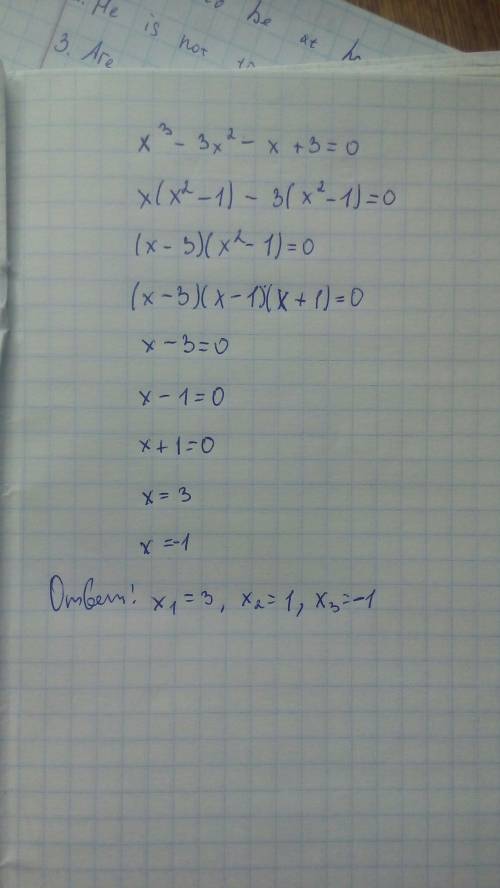 He
be
is not
at
3. Are
x³ - 3x² - x + 3 = 0
x(x² - 1) - 3(x² - 1) = 0
(x - 3)(x² - 1) = 0
(x - 3)(x - 1)(x + 1) = 0
x - 3 = 0
x - 1 = 0
x + 1 = 0
x = 3
x = -1
Ответ: x₁ = 3, x₂ = 1, x₃ = -1